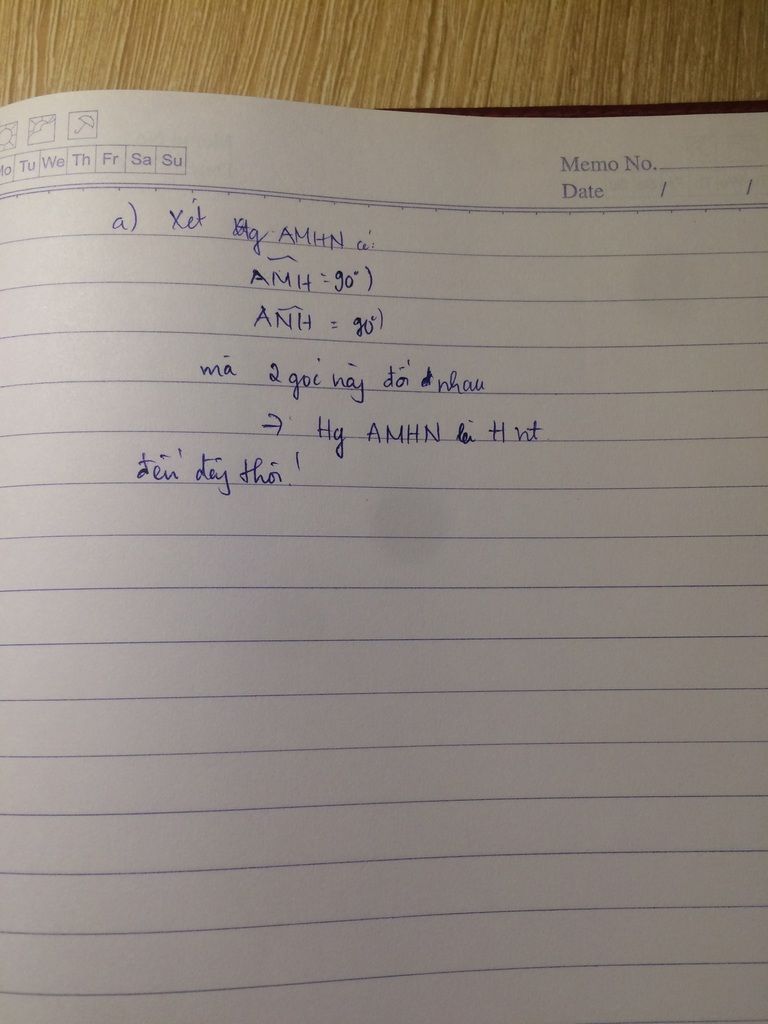 Mo Tu We Th Fr Sa Su
Memo No.
Date / /
a) Xét tg AMHN có:
AMH = 90°)
ANH = 90°)
mà 2 góc này đối nhau
→ Hg AMHN là tg nt
đến đây thôi!